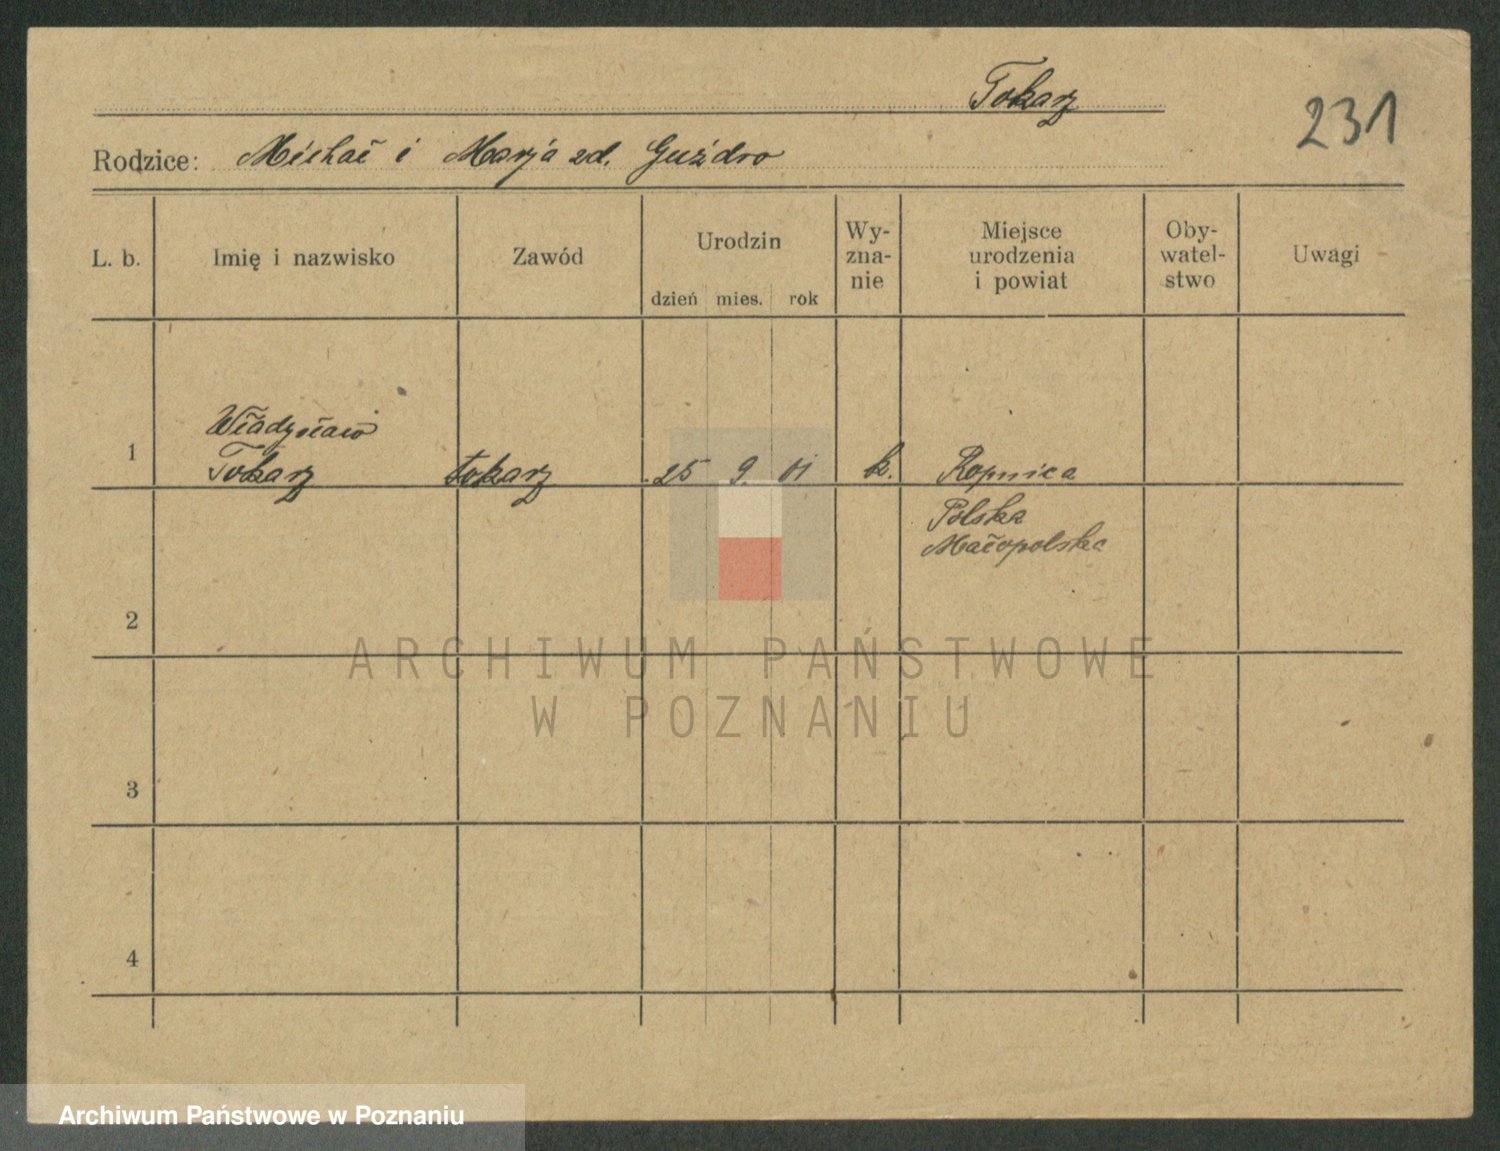 Tokarz
231
Rodzice: Michał i Marja zd. Guźdro
L. b.
Imię i nazwisko
Zawód
Urodzin
dzień mies. rok
Wy-
zna-
nie
Miejsce
urodzenia
i powiat
Oby-
watel-
stwo
Uwagi
1
Władysław
Tokarz
tokarz
25 9. 01
k.
Ropnica
Polska
Małopolska
2
3
4
ARCHIWUM PAŃSTWOWE
W POZNANIU
Archiwum Państwowe w Poznaniu